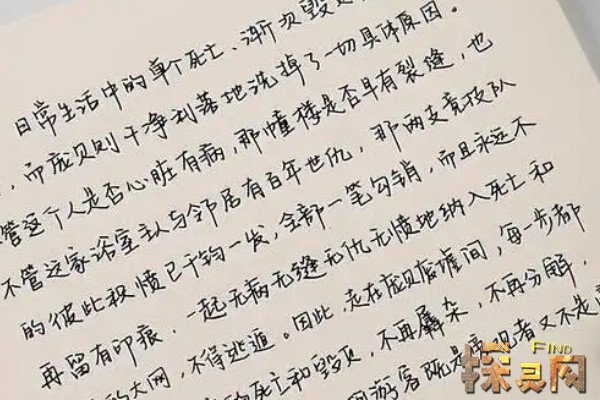 日常生活中的单个死亡、渐次毁
，而庞贝则干净利落地洗掉了一切具体原因。
管这个人是否心脏有病，那幢楼是否早有裂缝，也
不管这家浴室主人与邻居有百年世仇，那两支竞技队
的彼此积愤已千钧一发，全部一笔勾销，而且永远不
再留有印痕，一起无病无缝无仇无愤地纳入死亡和
的大网，不得逃遁。因此，走在庞贝废墟间，每一步都
的死亡和毁灭，不再羼杂，不再分解，
游客既是 者又不是
FIND
探灵网